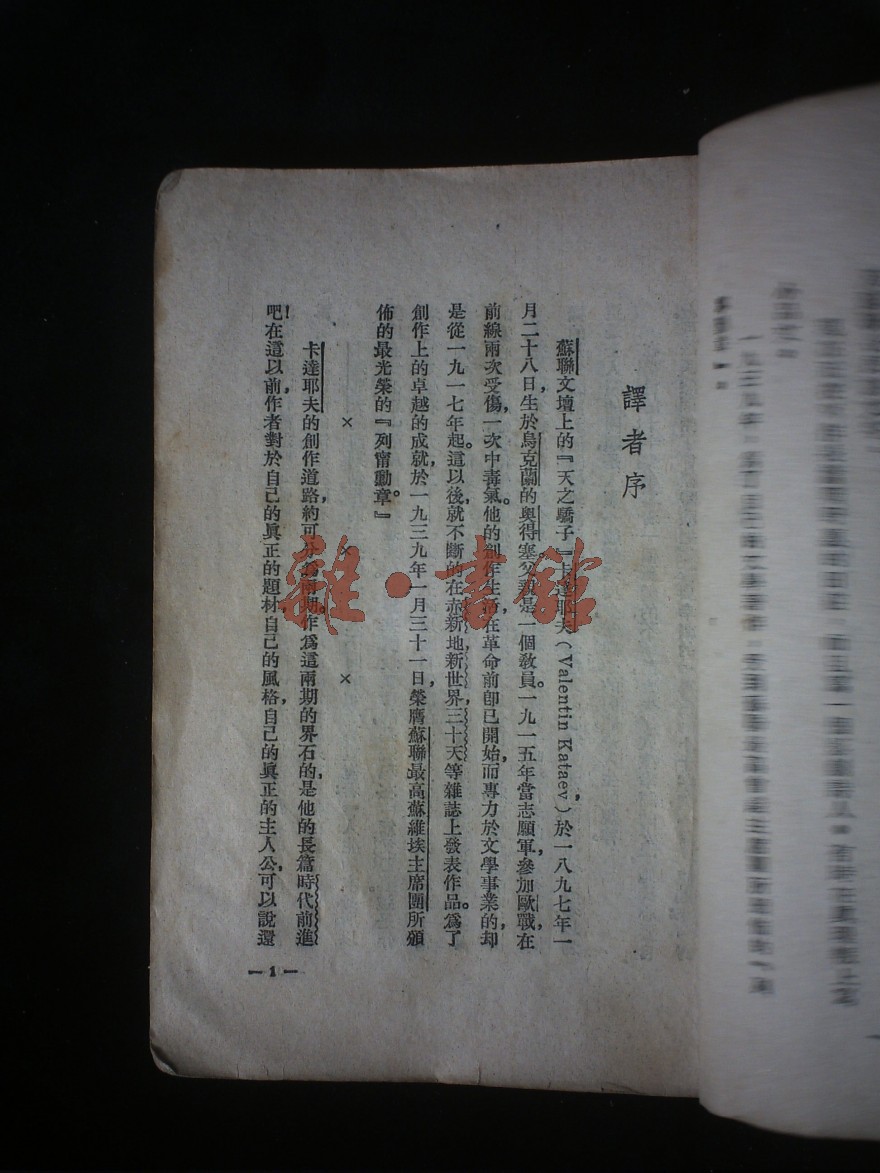 譯者序
蘇聯文壇上的『天之驕子』卡達耶夫(Valentin Kataev),於一八九七年一
月二十八日,生於烏克蘭的奧得塞。父親是一個教員。一九一五年當志願軍,參加歐戰,在
前線兩次受傷,一次中毒氣。他的創作生活在革命前即已開始,而專力於文學事業的,却
是從一九一七年起。這以後,就不斷的在赤新地,新世界,三十天等雜誌上發表作品。爲了
創作上的卓越的成就,於一九三九年一月三十一日,榮膺蘇聯最高蘇維埃主席團所頒
佈的最光榮的『列甯勳章。』
×　×　×
卡達耶夫的創作道路約可分爲兩期。作爲這兩期的界石的,是他的長篇時代前進
吧!在這以前,作者對於自己的眞正的題材,自己的風格,自己的眞正的主人公,可以說還
— 1 —
雜·書館